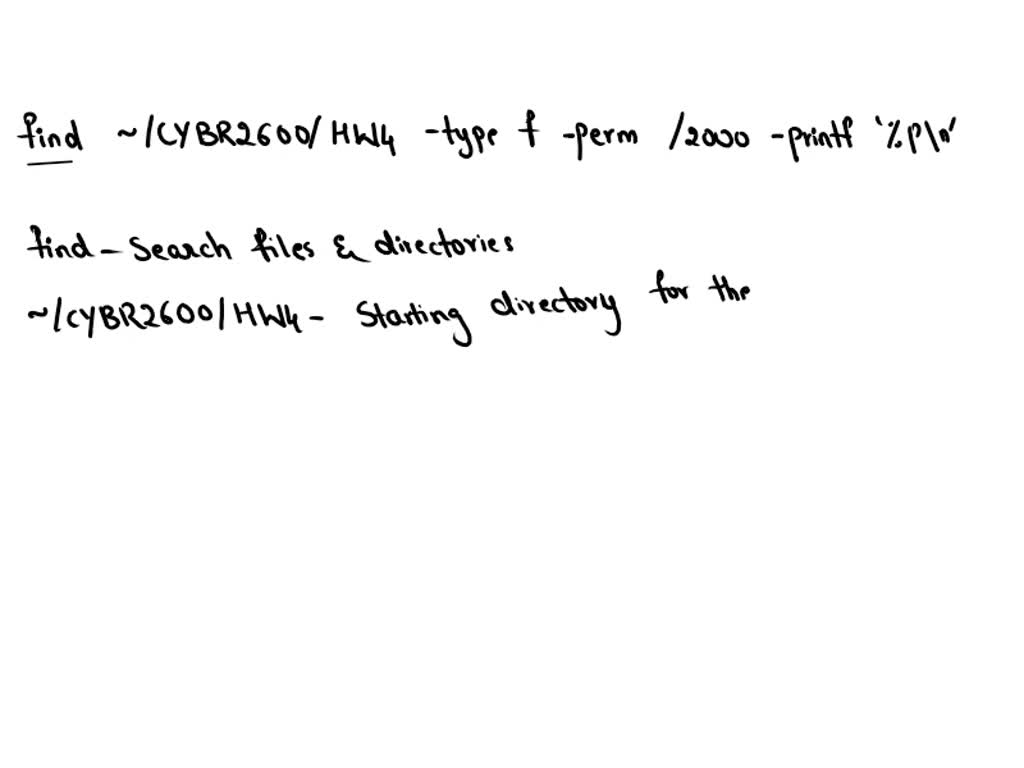 find ~/CYBR2600/HW4 -type f -perm /2000 -printf '%P\n'
find - Search files & directories
~/CYBR2600/HW4 - Starting directory for the